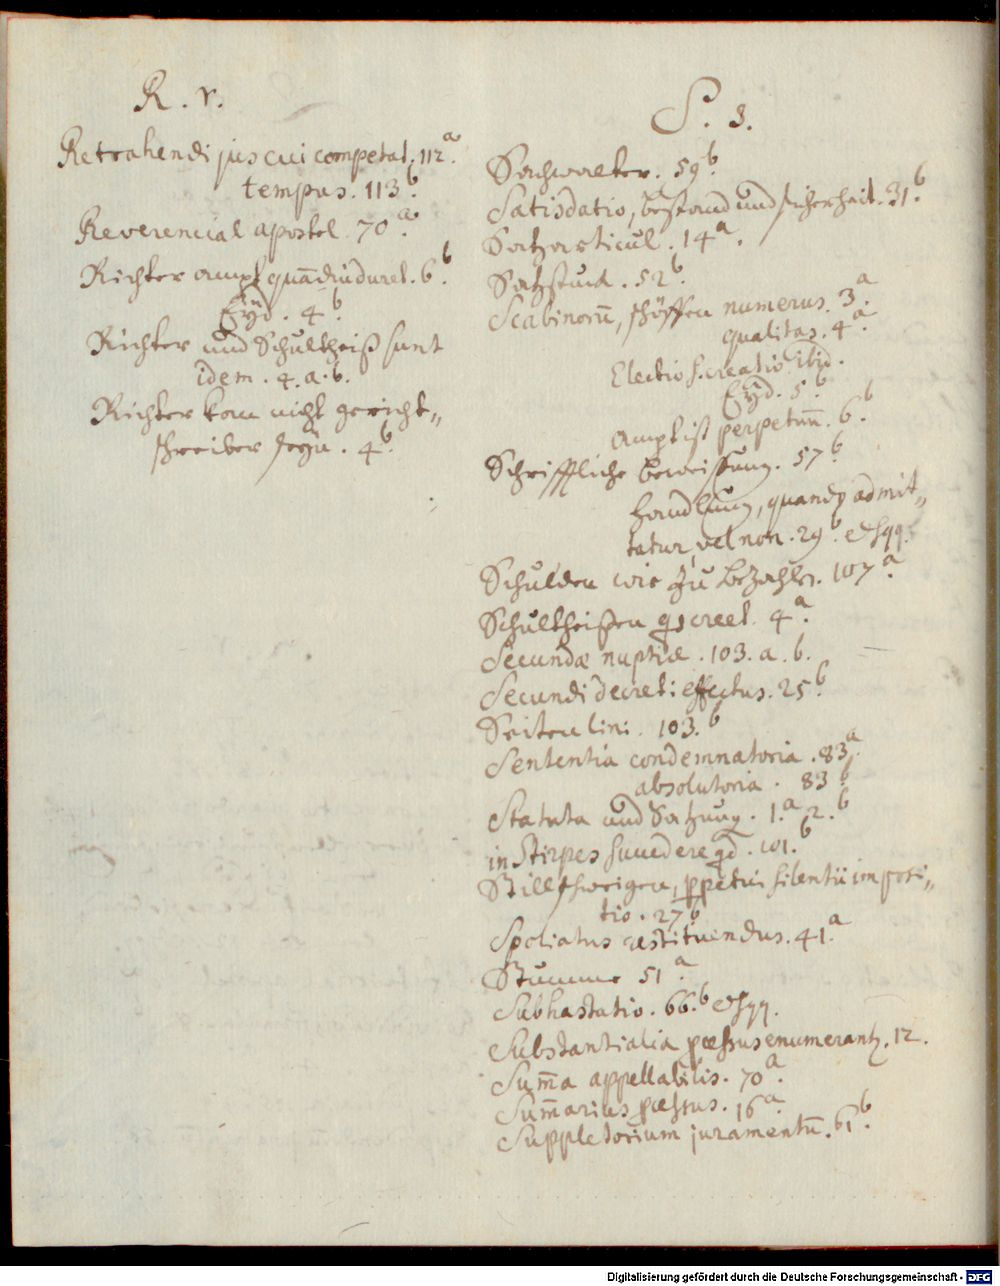 R. r.
Retrahendi jus cui competat. 112.a
tempus. 113.b
Reverencial apostel. 70.a
Richter ampt quādiu duret. 6.b
Eÿd. 4.b
Richter und Schultheiß sunt
idem. 4. a. b.
Richter kan nicht gericht„
schreiber seÿn. 4.b
S. s.
Sachwalter. 59.b
Satisdatio, bestand und sicherheit. 31.b
Satzarticul. 14.a
Satzstuck. 52.b
Scabinorū, schöffen numerus. 3.a
qualitas. 4.a
Electio s. creatio ibid.
Eÿd. 5.b
Ampt ist perpetuū. 6.b
Schrifftliche beweissung. 57.b
handlung, quando admit„
tatur, vel non. 29.b et sqq.
Schulden wie zu bezahlen. 107.a
Schultheißen creet. 4.a
Secundæ nuptiæ. 103. a. b.
Secundi decreti effectus. 25.b
Seiten lini. 103.b
Sententia condemnatoria. 83.a
absolutoria. 83.b
Statuta und Satzung. 1.a 2.b
in Stirpes succedere qd. 101.b
Stillschweigen, ppetui silentii imposi„
tio. 27.b
Spoliatus restituendus. 41.a
Stumme 51.a
Subhastatio. 66.b et sqq.
Substantialia processus enumerant. 12.
Sum̄a appellabilis. 70.a
Sum̄arius processus. 16.a
Suppletorium juramentū. 61.b
Digitalisierung gefördert durch die Deutsche Forschungsgemeinschaft - DFG